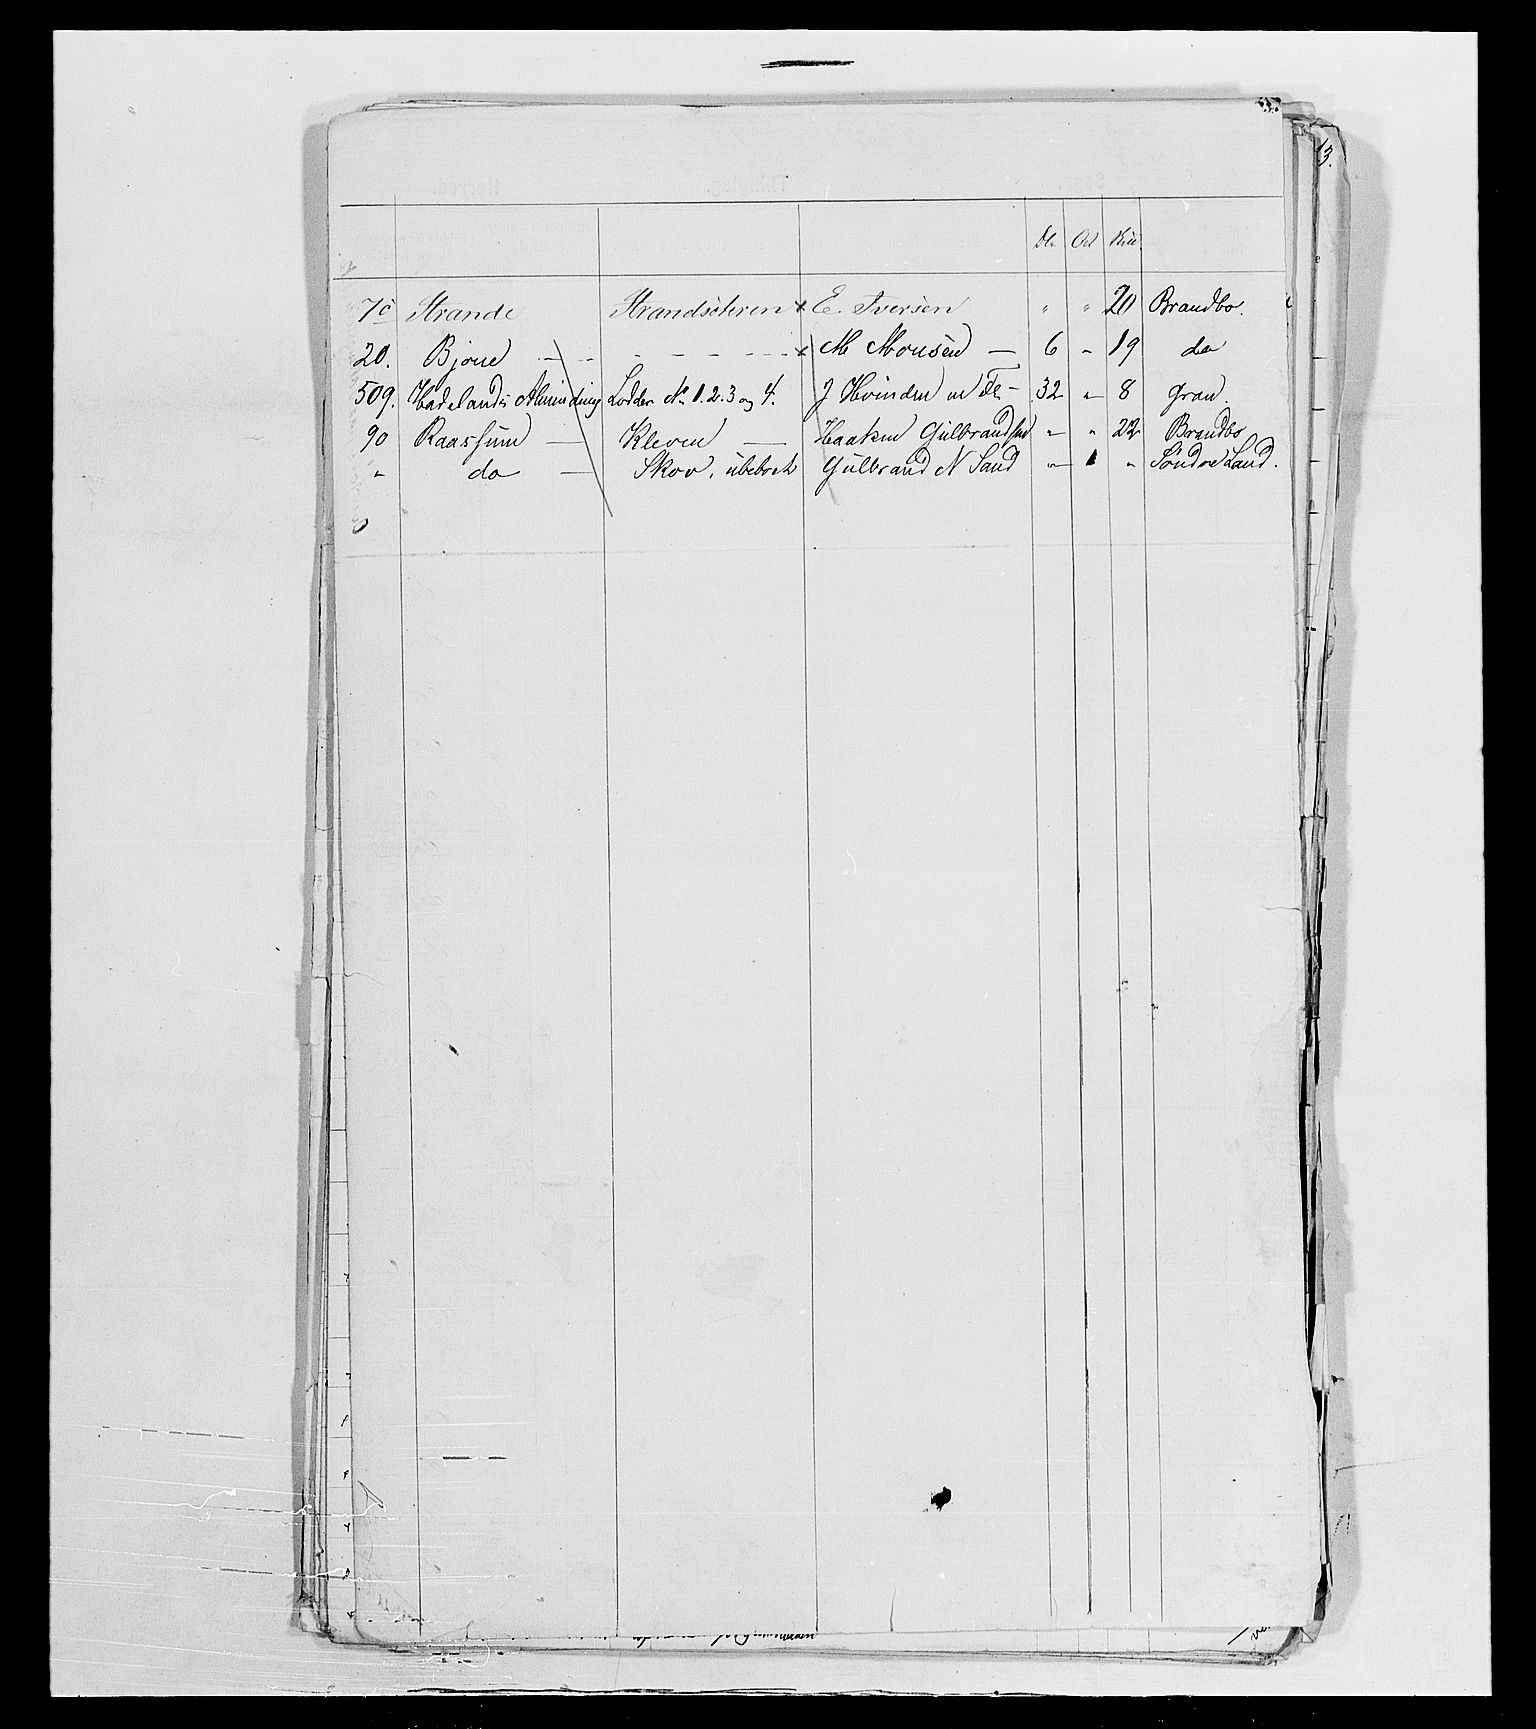 13.
Dlr Ort Skill
7c Strande Strandsæteren × E. Iversen " " 20 Brandbo.
20. Bjone — - - - - - - × M Monsen — 6 " 19 do
509. Hadelands Alminding Lodder No 1. 2. 3 og 4. J Hvinden m Fl — 32 " 8 Gran.
90 Raassum — Kleven — Haaken Gulbrandsen " " 22 Brandbo
" do — Skov, ubeboet Gulbrand N Sand " 1 " Søndre Land.